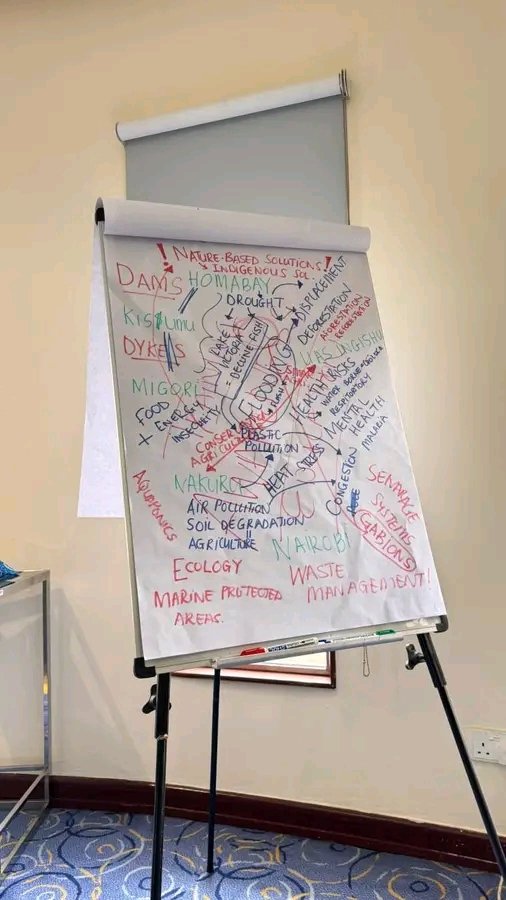 ! NATURE-BASED SOLUTIONS !
INDIGENOUS SOL.
DAMS
HOMABAY
DROUGHT
DISPLACEMENT
DEFORESTATION
AFORESTATION
REFORESTATION
KISUMU
LAKE
VICTORIA
= DECLINE FISH
FLOODING
UASINGISHU
DYKES
HEALTH RISKS
WATER BORNE
RESPIRTORY
MIGORI
MENTAL
HEALTH
MALARIA
FOOD
+ ENERGY
INSECURITY
CONSER
AGRICULTURE
PLASTIC
POLLUTION
HEAT STRESS
CONGESTION
NAKURU
AIR POLLUTION
SOIL DEGRADATION
AGRICULTURE
AQUAPONICS
SEWARAGE
SYSTEMS
GABIONS
NAIROBI
ECOLOGY
WASTE
MANAGEMENT!
MARINE PROTECTED
AREAS.